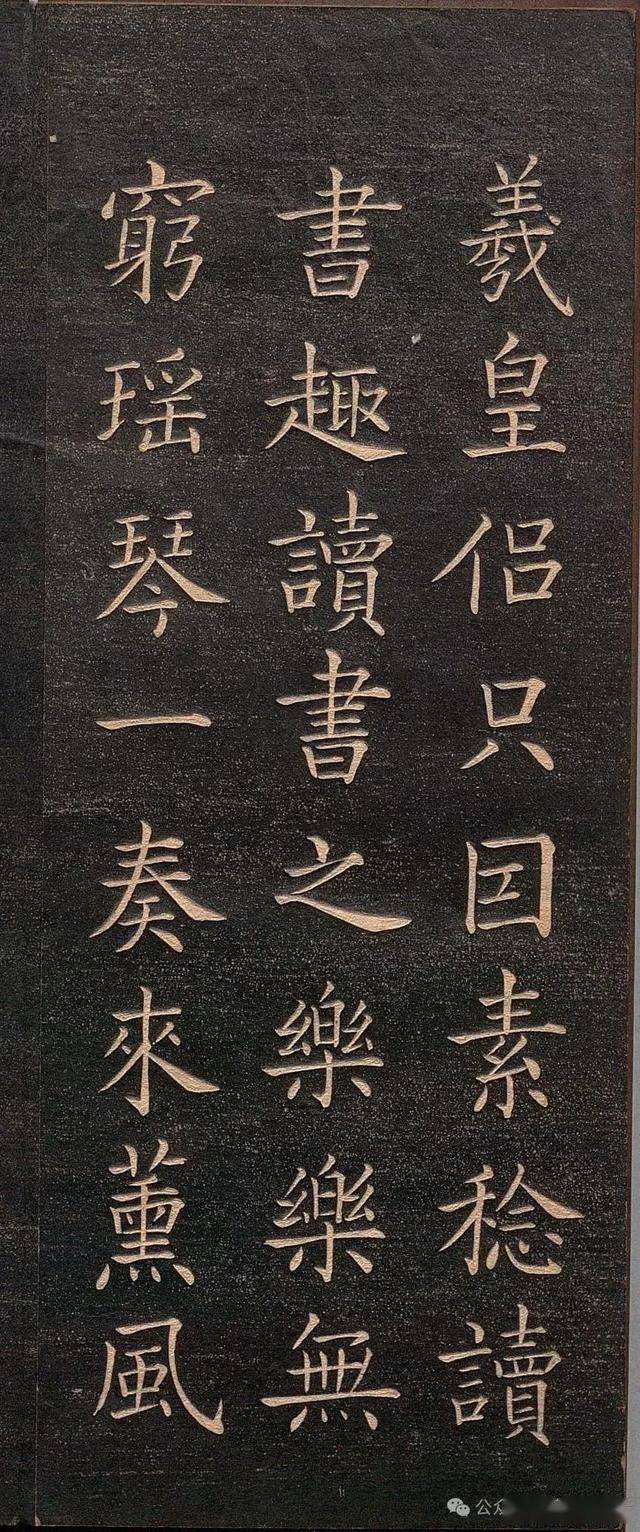 羲皇侣只因素稔讀
書趣讀書之樂樂無
窮瑶琴一奏來薰風
公众